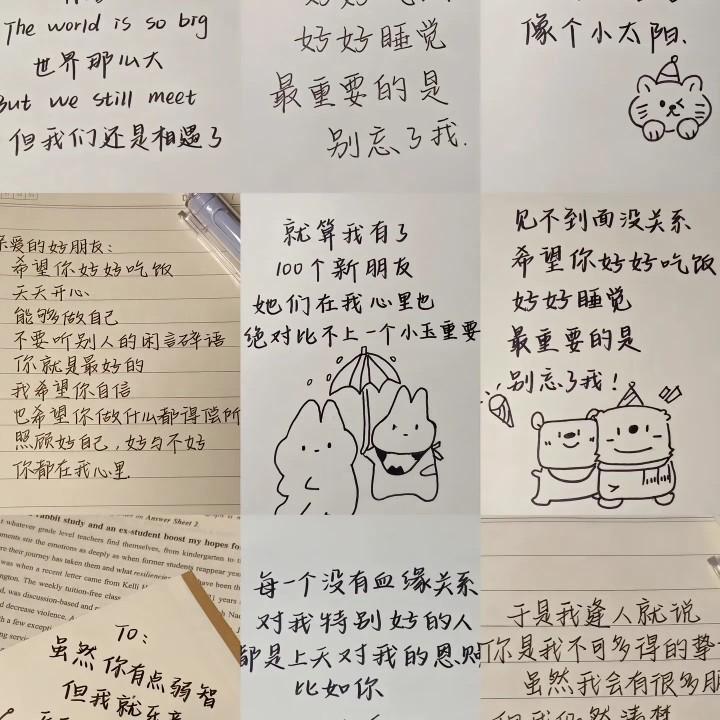 The world is so big
世界那么大
But we still meet
但我们还是相遇了
好好睡觉
最重要的是
别忘了我.
像个小太阳.
亲爱的好朋友:
希望你好好吃饭
天天开心
能够做自己
不要听别人的闲言碎语
你就是最好的
我希望你自信
也希望你做什么都得偿所
照顾好自己,好与不好
你都在我心里
就算我有了
100个新朋友
她们在我心里也
绝对比不上一个小玉重要
见不到面没关系
希望你好好吃饭
好好睡觉
最重要的是
别忘了我!
on Answer Sheet 2.
rabbit study and an ex-student boost my hopes fo
whatever grade level teachers find themselves, from kindergarten to
ments stir the emotions as deeply as when former students reappear
their journey has taken them and what resilience
was when a recent letter came from Kelli
ington. The weekly tuition-free class
was discussion-based and
decrease violence.
with a few exceptio
TO:
虽然你有点弱智
但我就乐意
每一个没有血缘关系
对我特别好的人
都是上天对我的恩赐
比如你
于是我逢人就说
你是我不可多得的挚
虽然我会有很多朋